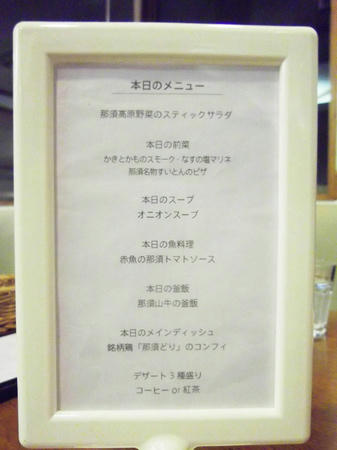 本日のメニュー
那須高原野菜のスティックサラダ
本日の前菜
かきとかものスモーク・なすの塩マリネ
那須名物すいとんのピザ
本日のスープ
オニオンスープ
本日の魚料理
赤魚の那須トマトソース
本日の釜飯
那須山牛の釜飯
本日のメインディッシュ
銘柄鶏「那須どり」のコンフィ
デザート3種盛り
コーヒー or 紅茶